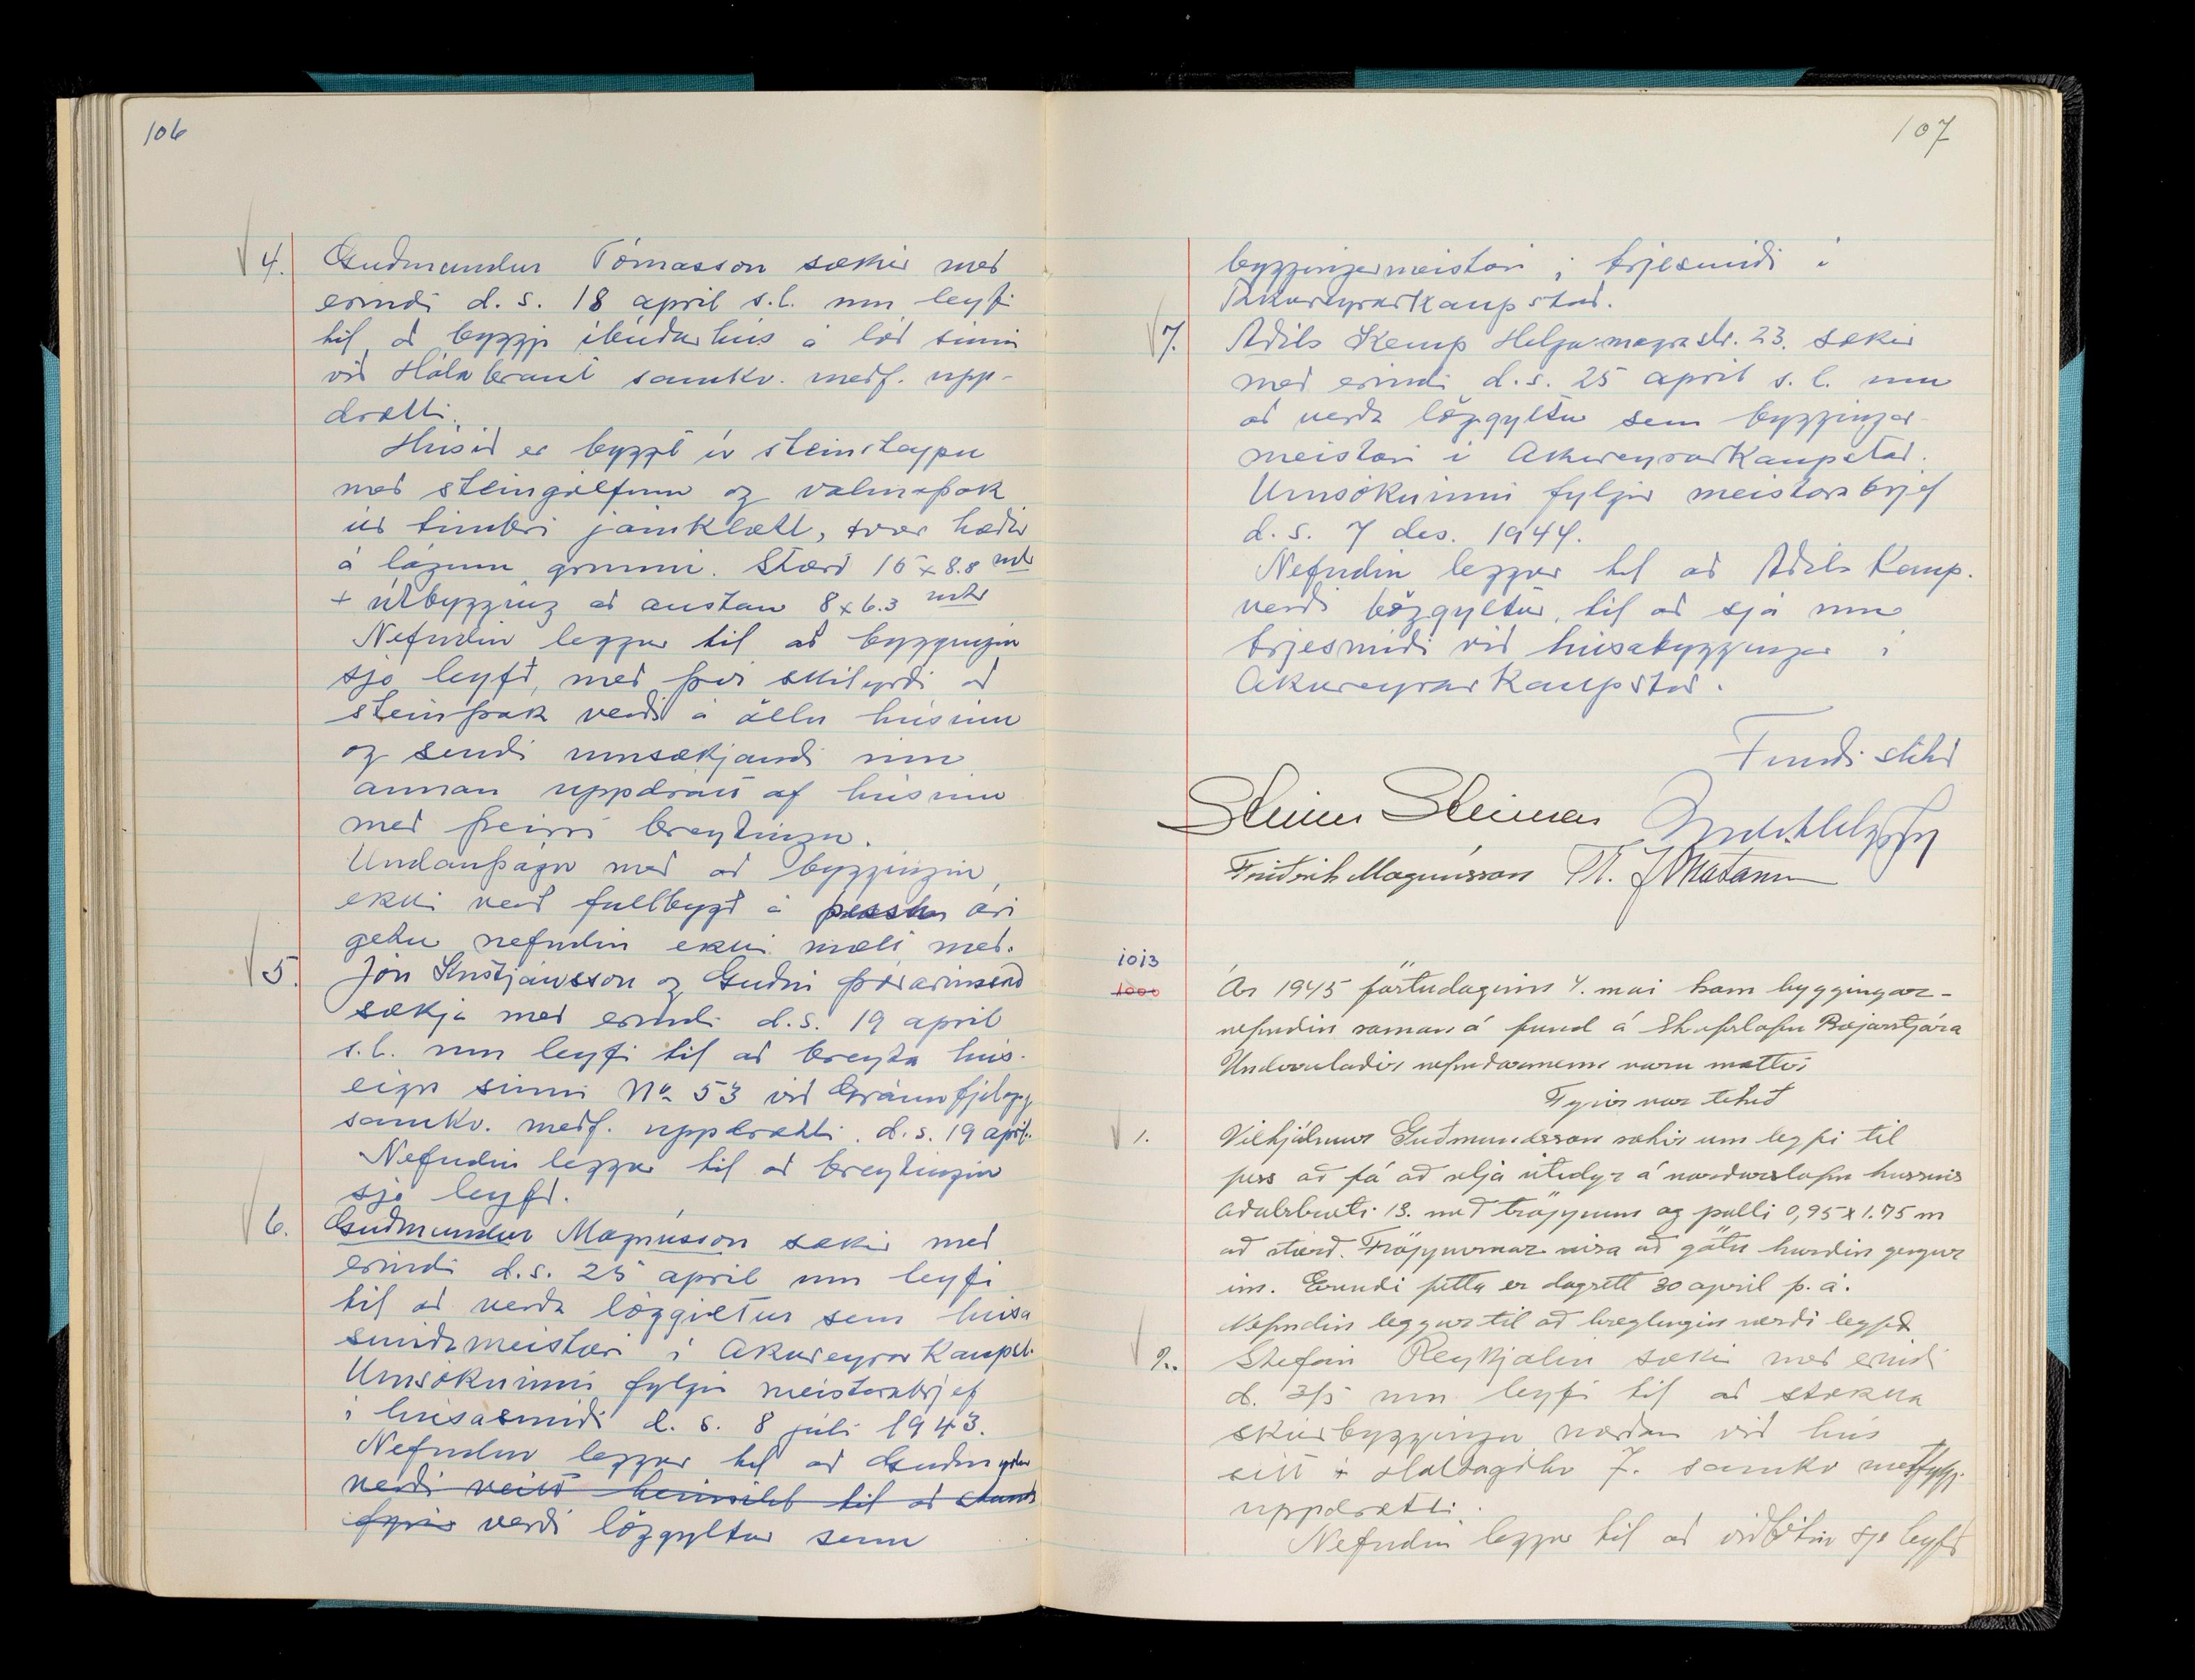 106
4. Guðmundur Tómasson sækir með
erindi d.s. 18 april s.l. um leyfi
til að byggja íbúðarhús á lóð sinni
við Hólabraut samkv. meðf. upp-
drætti.
Húsið er byggt úr steinsteypu
með steingólfum og valmaþak
úr timbri járnklætt, tvær hæðir
á lágum grunni. Stærð 15 x 8.8 mtr
+ útbygging að austan 8 x 6.3 mtr
Nefndin leggur til að byggingin
sje leyfð, með því skilyrði að
steinþak verði á öllu húsinu
og sendi umsækjandi inn
annan uppdrátt af húsinu
með þeirri breytingu.
Undanþágu með að byggingin
ekki verð fullbygð á þessu ári
getur nefndin ekki mælt með.
5. Jón Kristjánsson og Guðni Þórarinsson
sækja með erindi d.s. 19 april
s.l. um leyfi til að breyta hús-
eign sinni No 53 við Gránufjelagsg.
samkv. meðf. uppdrætti. d.s. 19 april.
Nefndin leggur til að breytingin
sje leyfð.
6. Guðmundur Magnússon sækir með
erindi d.s. 25 april um leyfi
til að verða löggiltur sem húsa
smíðameistari í Akureyrarkaupst.
Umsókninni fylgir meistarabrjef
í húsasmíði d.s. 8 júli 1943.
Nefndin leggur til að Guðmundur
verði veitt heimild til að stunda
fyrir verði löggyltur sem
107
byggingermeistari í trjesmíði í
Akureyrarkaupstað.
7. Aðils Kemp Helga-magra str. 23. sækir
með erindi d.s. 25 april s.l. um
að verða löggyltur sem byggingar-
meistari í Akureyrarkaupstað.
Umsókninni fylgir meistarabrjef
d.s. 7 des. 1944.
Nefndin leggur til að Aðils Kemp.
verði löggyltur, til að sjá um
trjesmíði við húsabyggingar í
Akureyrarkaupstað.
Fundi slitið
Steinn Steinsen
Friðrik Magnússon
1013
1000
Ár 1945 föstudaginn 4. maí kom byggingar-
nefndin saman á fund á Skrifstofu Bæjarstjóra
Undirritaðir nefndarmenn voru mættir
Fyrir var tekið
1. Vilhjálmur Guðmundsson sækir um leyfi til
þess að fá að setja útidyr á norðurstafn hússins
Aðalstræti 13. með tröppum og palli 0,95 x 1.75 m
að stærð. Tröppurnar vísa að götu hurðin gengur
inn. Erindi þetta er dagsett 30 april þ.á.
Nefndin leggur til að breytingin verði leyfð
2. Stefán Reykjalín sækir með erindi
d. 3/5 um leyfi til að stækka
skúrbyggingu norðan við hús
sitt í Holtagötu 7. samkv meðfylgj.
uppdrætti.
Nefndin leggur til að viðbótin sje leyfð